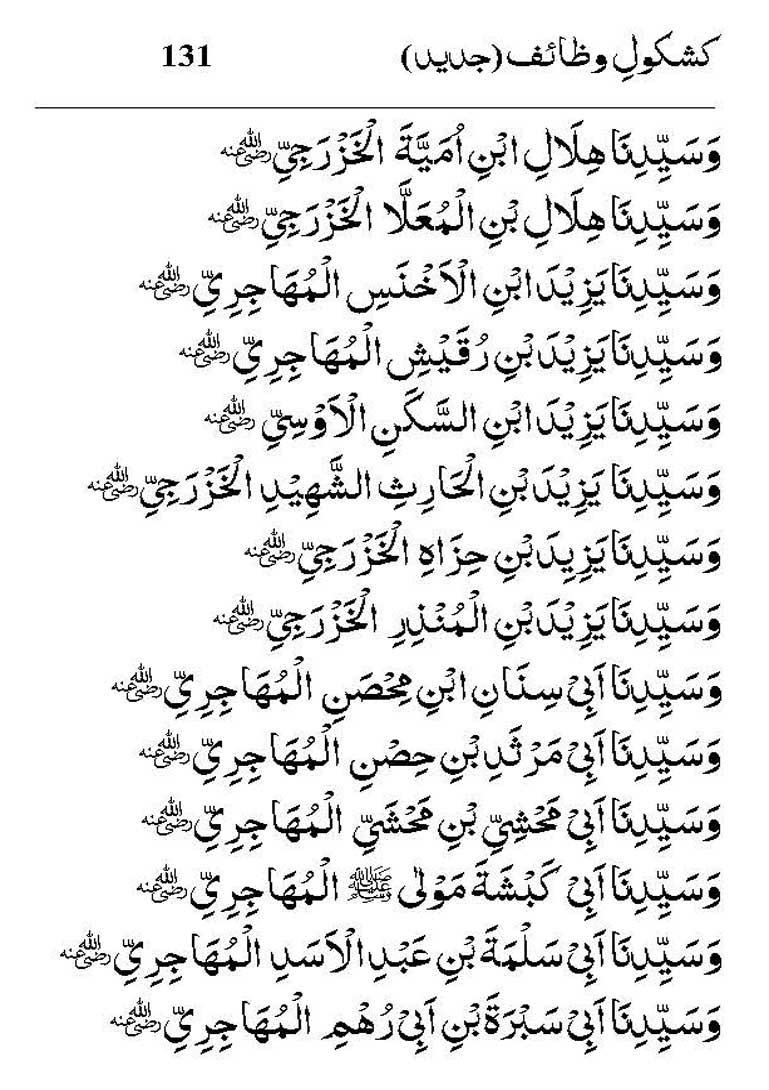 کشکولِ وظائف (جدید) 131
وَسَيِّدِنَا هِلَالِ ابْنِ اُمَيَّةَ الْخَزْرَجِيِّ رضی اللہ عنہ
وَسَيِّدِنَا هِلَالِ بْنِ الْمُعَلَّا الْخَزْرَجِيِّ رضی اللہ عنہ
وَسَيِّدِنَا يَزِيْدَ ابْنِ الْاَخْنَسِ الْمُهَاجِرِيِّ رضی اللہ عنہ
وَسَيِّدِنَا يَزِيْدَ بْنِ رُقَيْشِ الْمُهَاجِرِيِّ رضی اللہ عنہ
وَسَيِّدِنَا يَزِيْدَ ابْنِ السَّكَنِ الْاَوْسِيِّ رضی اللہ عنہ
وَسَيِّدِنَا يَزِيْدَ بْنِ الْحَارِثِ الشَّهِيْدِ الْخَزْرَجِيِّ رضی اللہ عنہ
وَسَيِّدِنَا يَزِيدَ بْنِ حِزَاهِ الْخَزْرَجِيِّ رضی اللہ عنہ
وَسَيِّدِنَا يَزِيْدَ بْنِ الْمُنْذِرِ الْخَزْرَجِيِّ رضی اللہ عنہ
وَسَيِّدِنَا اَبِيْ سِنَانِ ابْنِ مِحْصَنِ الْمُهَاجِرِيِّ رضی اللہ عنہ
وَسَيِّدِنَا اَبِيْ مَرْثَدِ بْنِ حِصْنِ الْمُهَاجِرِيِّ رضی اللہ عنہ
وَسَيِّدِنَا اَبِيْ مَحْشِيِّ بْنِ مَحْشَيِّ الْمُهَاجِرِيِّ رضی اللہ عنہ
وَسَيِّدِنَا اَبِيْ كَبْشَةَ مَوْلٰى ﷺ الْمُهَاجِرِيِّ رضی اللہ عنہ
وَسَيِّدِنَا اَبِيْ سَلْمَةَ بْنِ عَبْدِ الْاَسَدِ الْمُهَاجِرِيِّ رضی اللہ عنہ
وَسَيِّدِنَا اَبِيْ سَبْرَةَ بْنِ اَبِيْ رُهْمِ الْمُهَاجِرِيِّ رضی اللہ عنہ